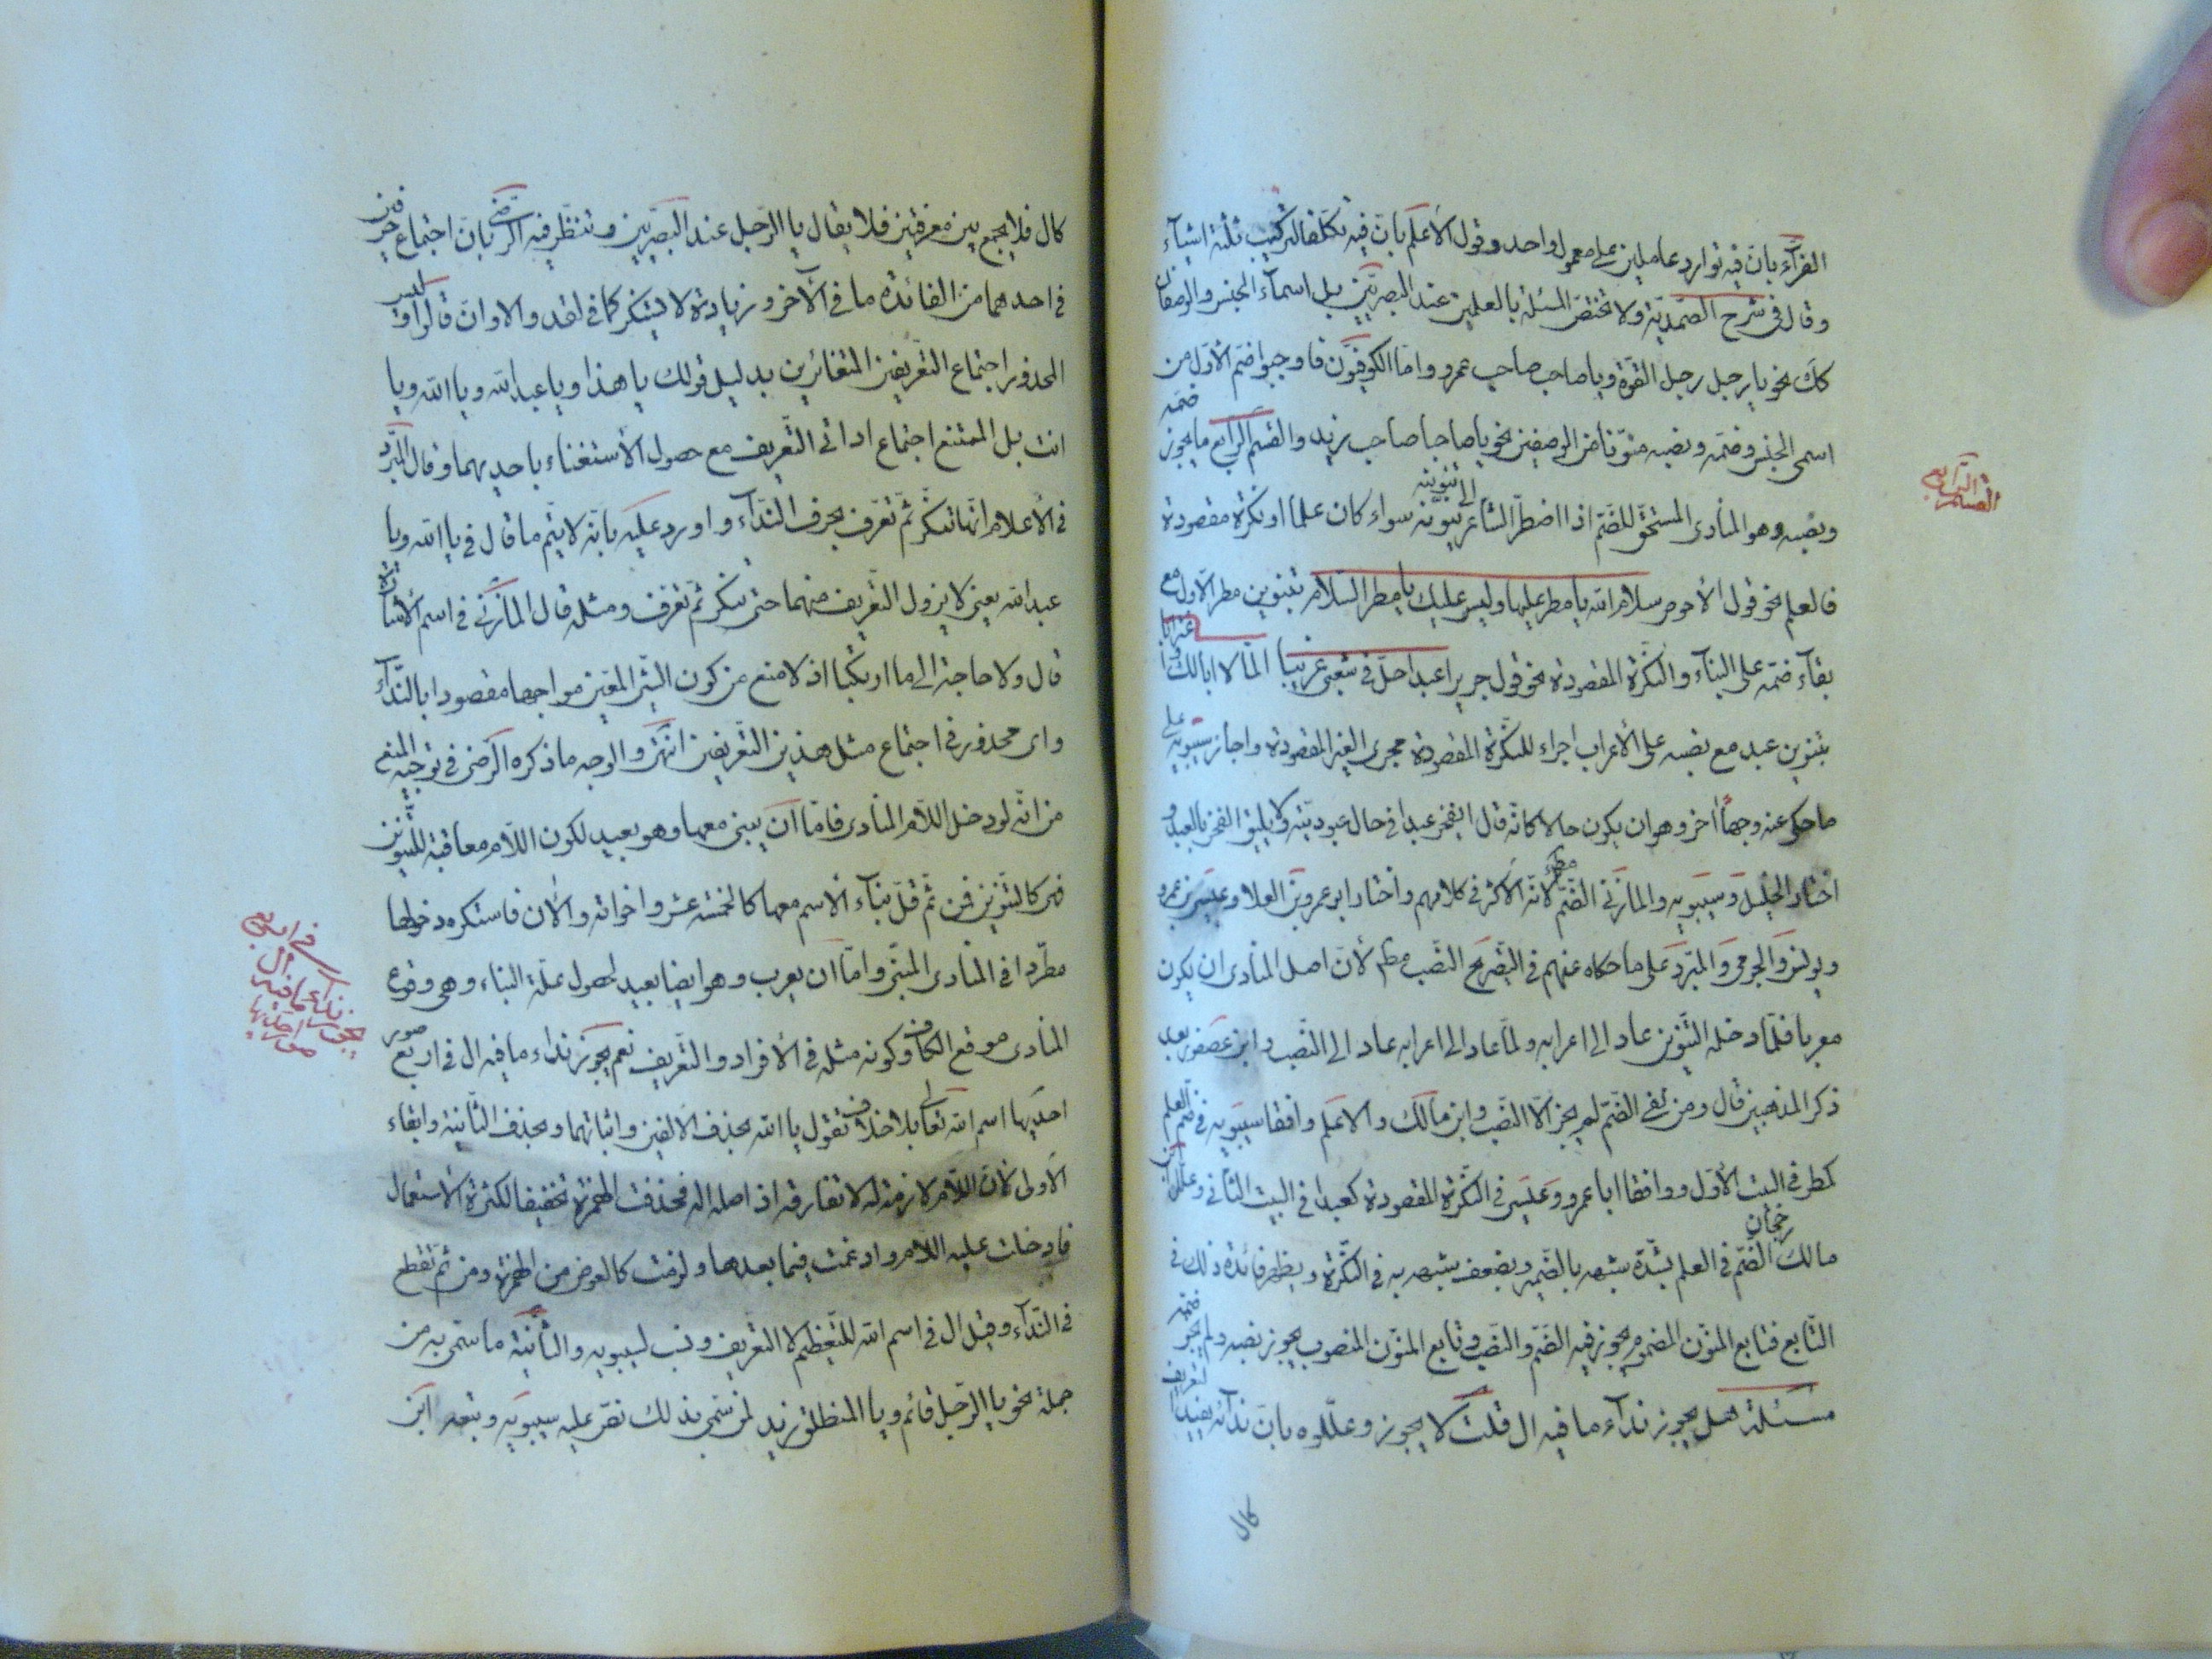 الفرّآء بانّ فيه توارد عاملين على معمول واحد وقول الأعلم بانّ فيه تكلّفا لتركيب ثلثة اشيآء
وقال فى شرح الصّمديّة ولا تختصّ المسئلة بالعلمين عند البصريّين بل اسمآء الجنس والوصفان
كك نحو يا رجل رجل القوم ويا صاحب صاحب عمرو وامّا الكوفيّون فاوجبوا ضمّ الأوّل من
اسمى الجنس وضمّه ونصبه منوّنا من الوصفين نحو يا صاحبا صاحب زيد والقسم الرّابع ما يجوز ضمّه
ونصبه وهو المنادى المستحقّ للضّمّ اذا اضطرّ الشّاعر الى تنوينه سواء كان علما او نكرة مقصودة
القسم الرّابع
فالعلم نحو قول الأحوص سلام الله يا مطر عليها وليس عليك يا مطر السّلام بتنوين مطر الأوّل مع
بقآء ضمّه على البنآء والنّكرة المقصودة نحو قول جرير اعبدا حلّ فى شعبى غريبا الما لا ابالك واغترابا
بتنوين عبد مع نصبه على الأعراب اجراء للنّكرة المقصودة مجرى الغير المقصودة واجاز سيبويه على
ما حكى عنه وجها آخر وهو ان يكون حالا كانّه قال اتفخر عبدا فى حال عبوديّته ولا يليق الفخر بالعبد و
اختار الخليل وسيبويه والمازنى الضّمّ مط لانّه الأكثر فى كلامهم واختار ابو عمرو بن العلا وعيسى بن عمرو
ويونس والجرمى والمبرّد على ما حكاه عنهم فى التّصريح النّصب مط لأنّ اصل المنادى ان يكون
معربا فلمّا دخله التّنوين عاد الى اعرابه ولمّا عاد الى اعرابه عاد الى النّصب وابن عصفور بعد
ذكر المذهبين قال ومن لغى الضّمّ لم يجز الّا النّصب وابن مالك والاعلم وافقا سيبويه فى ضمّ العلم
كمطر فى البيت الأوّل ووافقا ابا عمرو وعيسى فى النّكرة المقصودة كعبدا فى البيت الثّانى وعلّل ابن
مالك رجحان الضّمّ فى العلم بشدّة شبهه بالضّمير وبضعف شبهه به فى النّكرة ويظهر فائدة ذلك فى
التّابع فتابع المنوّن المضموم يجوز فيه الضّمّ والنّصب وتابع المنوّن المنصوب يجوز نصبه ولم يجز ضمّه
مسئلة هل يجوز ندآء ما فيه ال قلت لا يجوز وعلّلوه بانّ ندآئه يفيد التّعريف
كال
كال فلا يجمع بين معرفتين فلا يقال يا الرّجل عند البصريّين وتنظّر فيه الرّضى بانّ اجتماع حرفين
فى احدهما من الفائدة ما فى الآخر وزيادة لا يستنكر كما فى لقد والا وانّ قال وليس
المحذور اجتماع التّعريفين المتغائرين بدليل قولك يا هذا ويا عبد الله ويا الله ويا
انت بل الممتنع اجتماع اداتى التّعريف مع حصول الأستغناء باحديهما وقال المبرّد
فى الأعلام انّها تنكّر ثمّ تعرّف بحرف النّدآء واورد عليه بانّه لا يتمّ ما قال فى يا الله ويا
عبد الله يعنى لا يزول التّعريف منهما حتى ينكر ثمّ تعرف ومثله قال المازنى فى اسم الأشارة
قال ولا حاجة الى ما ارتكبا اذ لا منع من كون الشّئ المعيّن مواجها مقصودا بالنّدآء
واى محذور فى اجتماع مثل هذين التّعريفين انتهى والوجه ما ذكره الرّضى فى توجيه المنع
من انّه لو دخل اللّام المنادى فامّا ان يبنى معها وهو بعيد لكون اللّام معاقبة للتّنوين
فهى كالتّنوين فمن ثمّ قلّ بنآء الأسم معها كالخمسة عشر واخواته والآن فاستكره دخولها
مطّردا فى المنادى المبنّى وامّا ان يعرب وهو ايضا بعيد لحصول علّة البناء وهى وقوع
المنادى موقع الكاف وكونه مثله فى الأفراد والتّعريف نعم يجوز نداء ما فيه ال فى اربع صور
فى اربع
يجوز نداء ما فيه ال
صور احديها
احديها اسم الله تعالى بلا خلاف تقول يا الله بحذف الألفين واثباتهما وبحذف الثّانية وابقاء
الأولى لانّ اللّام لازمة له لا تفارقه اذ اصله اله فحذفت الهمزة تخفيفا لكثرة الأستعمال
فادخلت عليه اللّام وادغمت فيما بعدها ولزمت كالعوض من الهمزة ومن ثمّ تقطع
فى النّدآء وقيل ال فى اسم الله للتّعظيم لا التّعريف ونسب لسيبويه والثّانية ما سمّى به من
جملة نحو يا الرّجل قائم ويا المنطلق زيد لمن سمّى بذلك نصّ عليه سيبويه وتبعه ابن